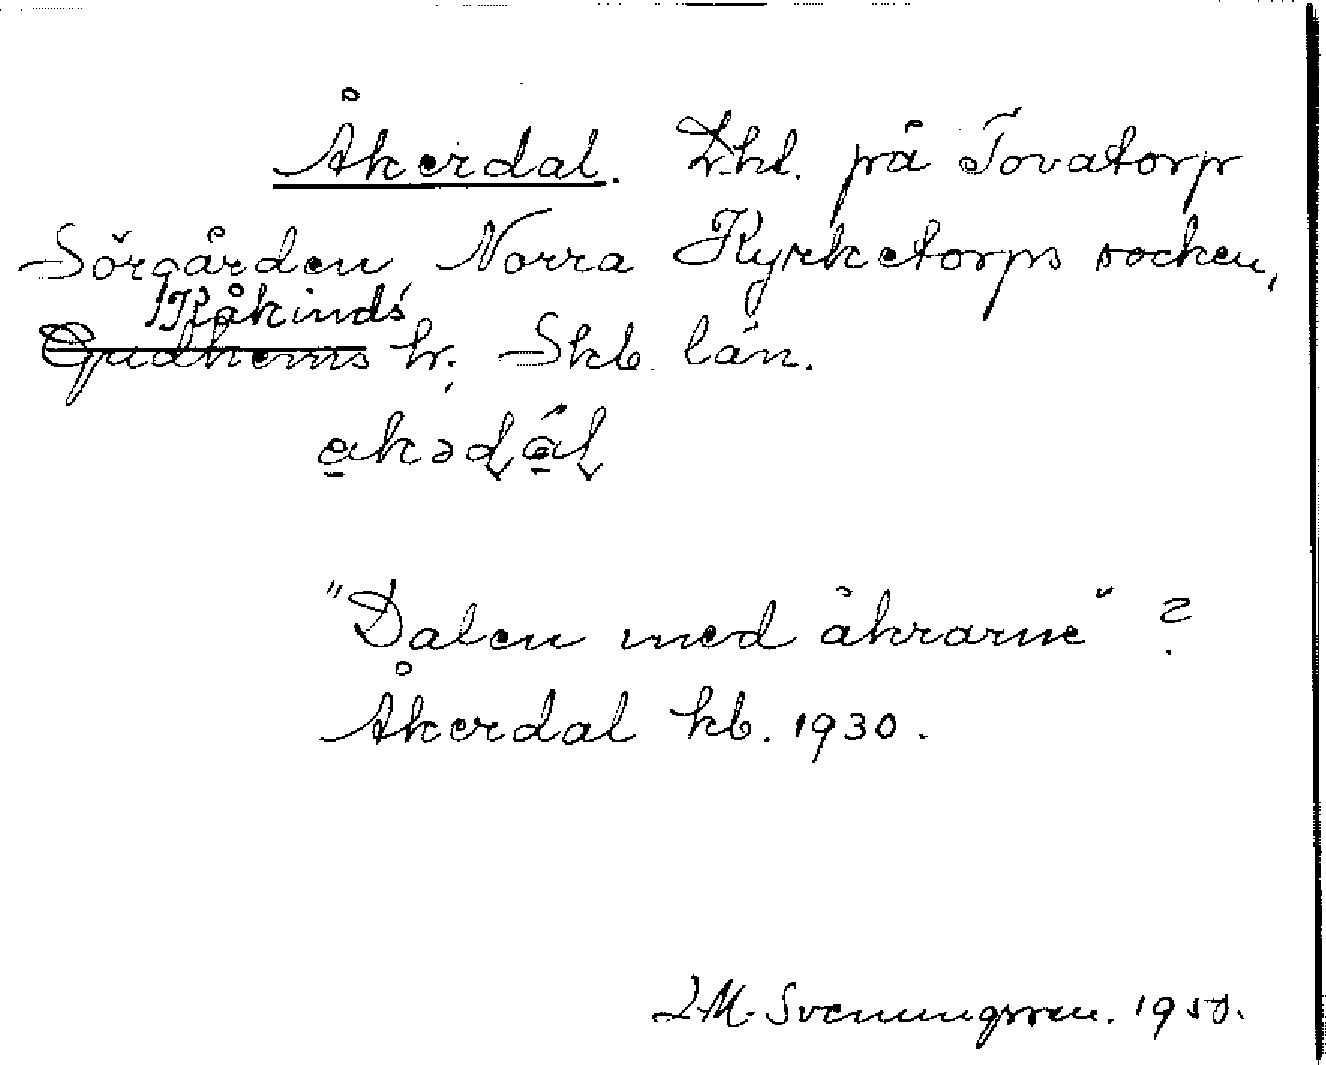 Åkerdal. Lht. på Tovatorp
Sörgården Norra Kyrketorps socken,
Kåkinds
Gudhems hr. Skb. län.
"Dalen med åkrarne" ?
Åkerdal kb. 1930.
Svenungsson. 1950.